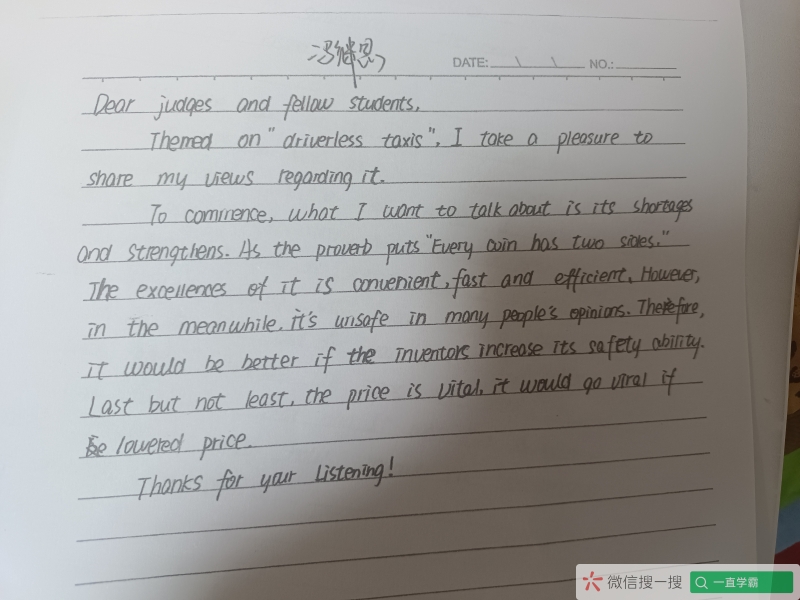 冯继恩
DATE: \ \ NO.:
Dear judges and fellow students,
Themed on "driverless taxis", I take a pleasure to
share my views regarding it.
To commence, what I want to talk about is its shortages
and strengthens. As the proverb puts "Every coin has two sides."
The excellences of it is convenient, fast and efficient. However,
in the meanwhile, it's unsafe in many people's opinions. Therefore,
it would be better if the inventors increase its safety ability.
Last but not least, the price is vital, it would go viral if
be lowered price.
Thanks for your listening!
微信搜一搜 一直学霸